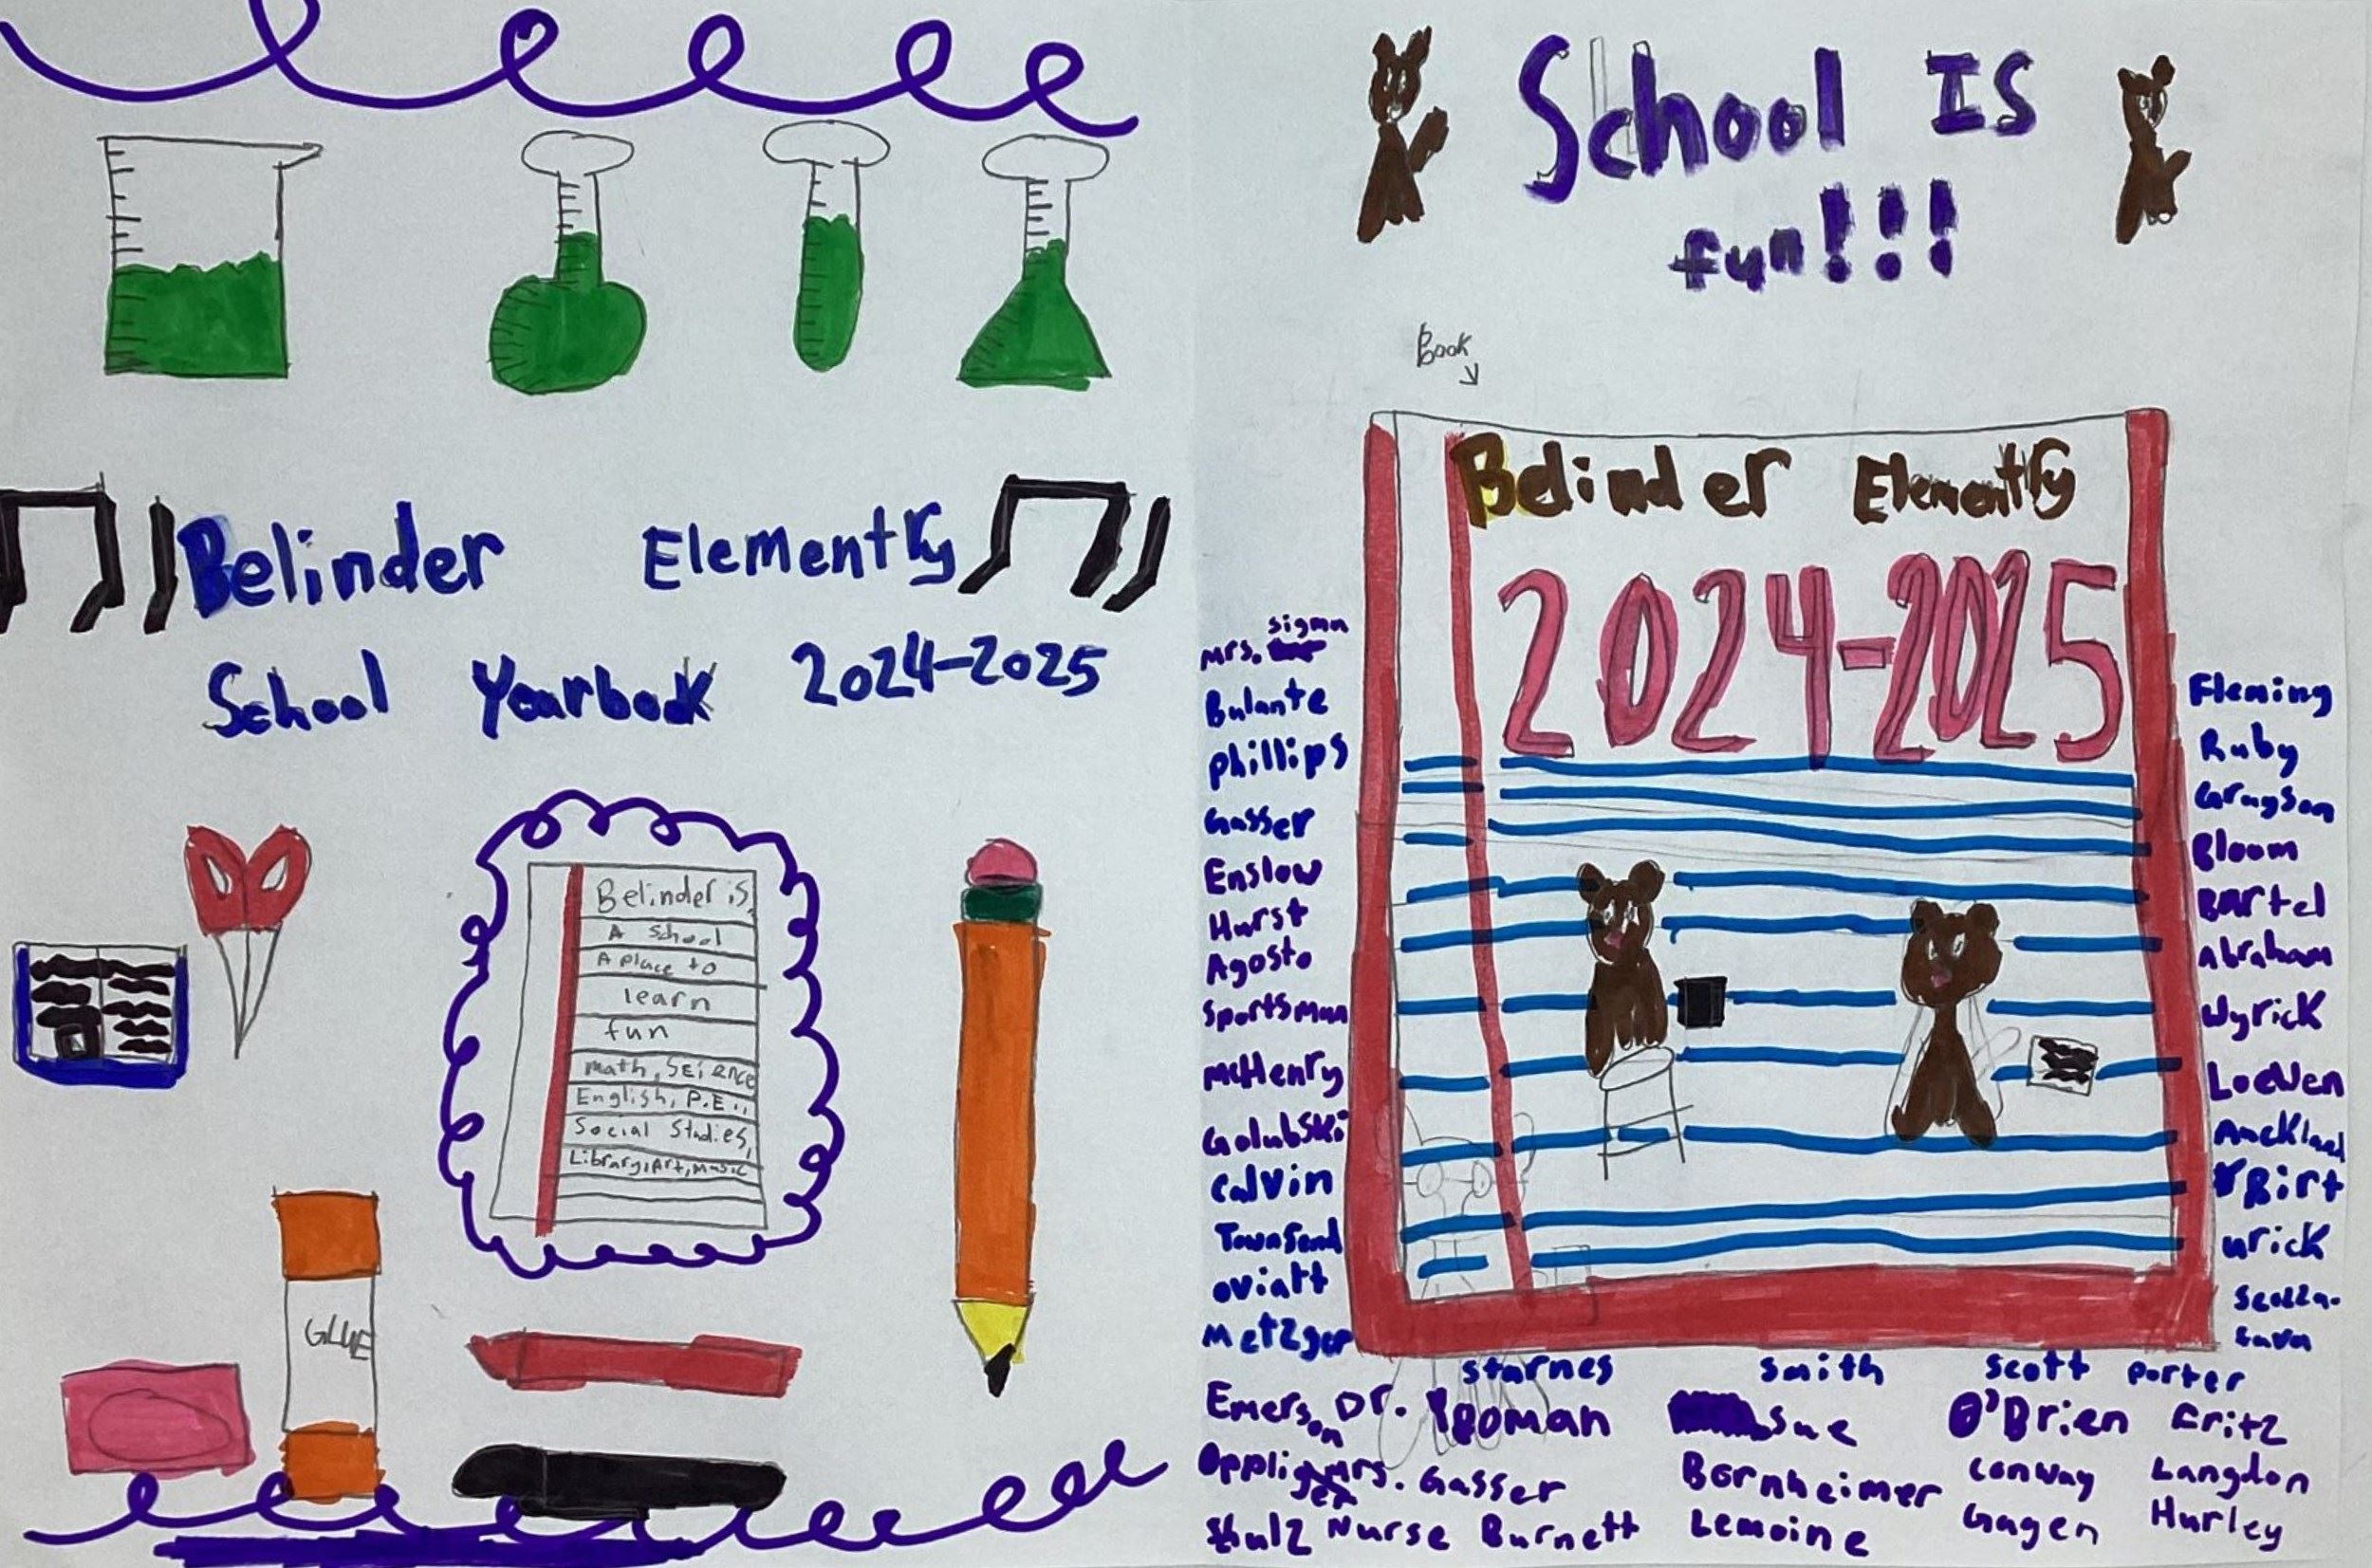 Belinder Elementry
School Yearbook 2024-2025
Belinder is
A School
A place to
learn
fun
math, Science
English, P.E.,
Social Studies,
Library, Art, Music
GLUE
School IS
fun!!!
Book
Belinder Elementry
2024-2025
Mrs. Sigman
Bulante
Phillips
Gasser
Enslow
Hurst
Agosto
Sportsman
McHenry
Golubski
Calvin
Townsend
Oviatt
Metzger
Fleming
Ruby
Grayson
Bloom
Bartel
Abraham
Wyrick
Loewen
Birt
urick
Starnes Smith Scott Porter
Emerson Dr. Roman Sue O'Brien Fritz
Oppliger Mrs. Gasser Bornheimer Conway Langdon
Shulz Nurse Burnett Lemoine Gagen Hurley